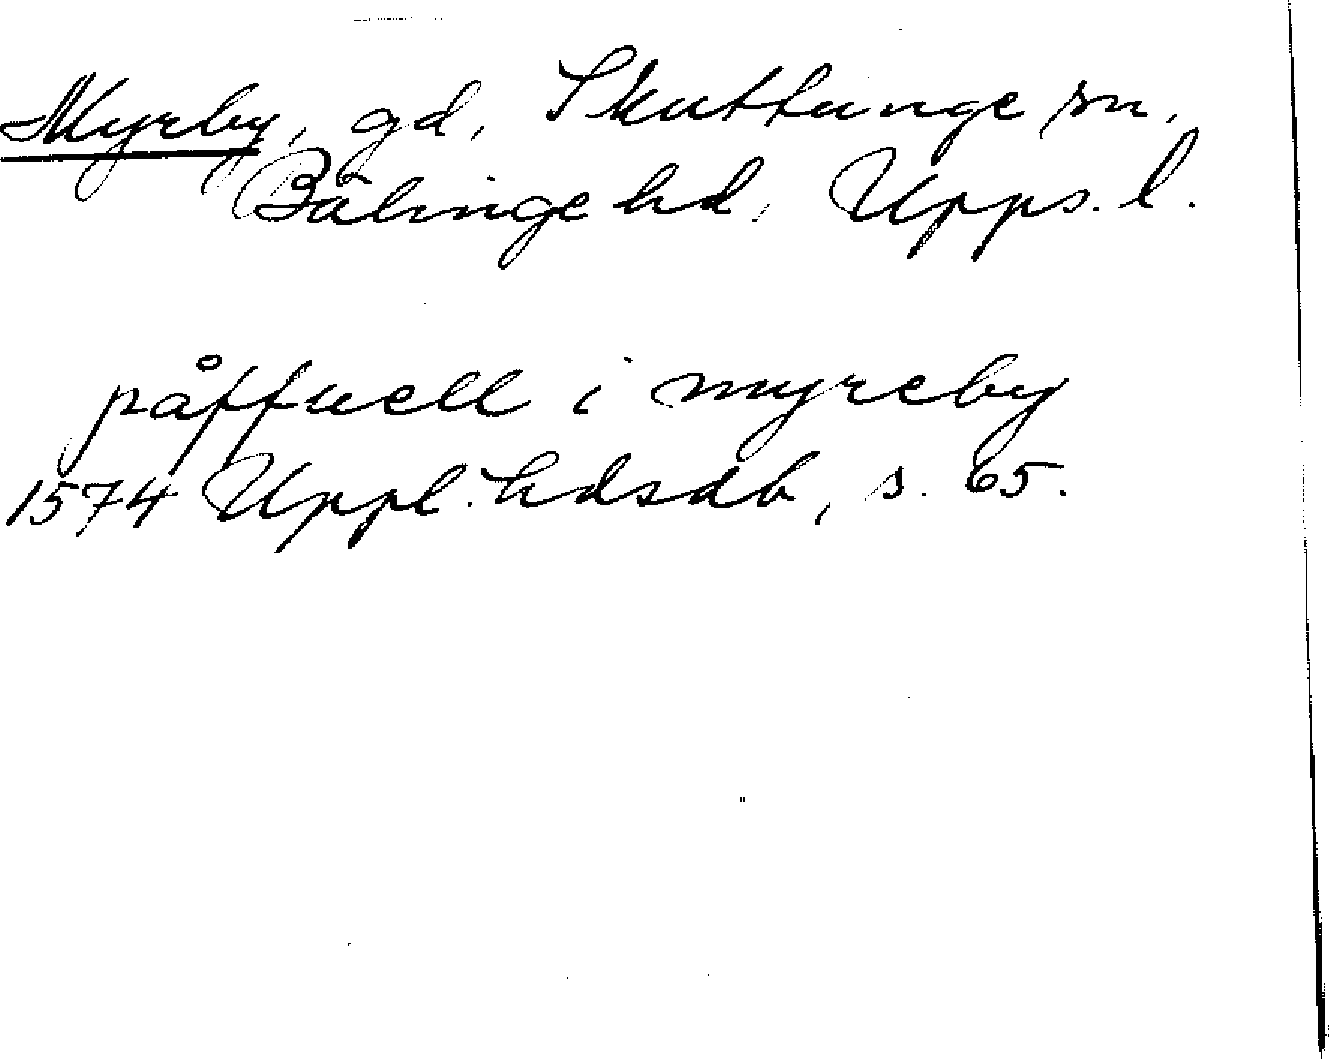 Myrby, gd, Skuttunge sn,
Bälinge hd, Upps. l.
påffuell i myreby
1574 Uppl. hdsdb, s. 65.